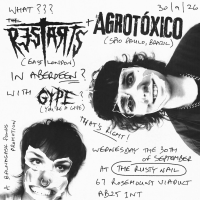 WHAT???
30/9/26
THE RESTARTS + AGROTÓXICO
(EAST LONDON)
(SÃO PAULO, BRAZIL)
IN ABERDEEN?
WITH GYPE
(YOU'RE A GYPE)
THAT'S RIGHT!
WEDNESDAY THE 30TH
OF SEPTEMBER
AT THE RUSTY NAIL
67 ROSEMOUNT VIADUCT
AB25 1NT
A PUNKS PROMOTION